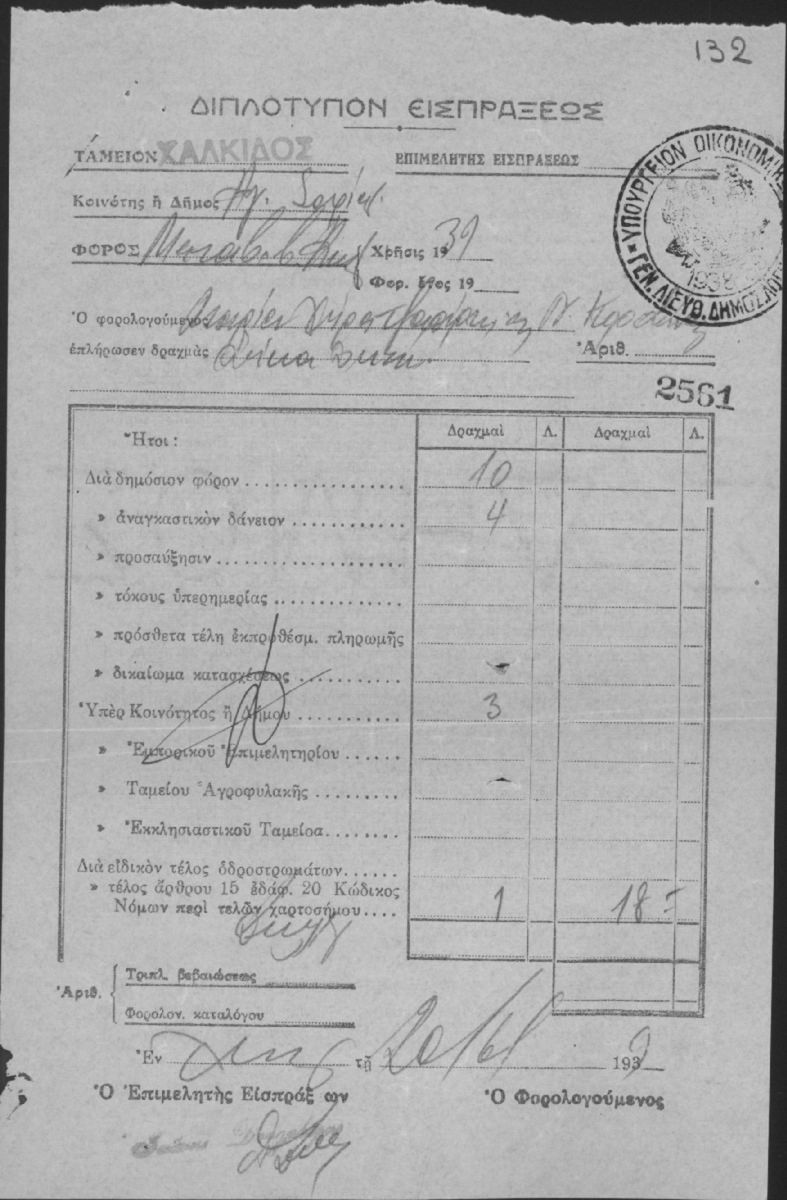 132
ΔΙΠΛΟΤΥΠΟΝ ΕΙΣΠΡΑΞΕΩΣ
ΤΑΜΕΙΟΝ ΧΑΛΚΙΔΟΣ
ΕΠΙΜΕΛΗΤΗΣ ΕΙΣΠΡΑΞΕΩΣ
ΥΠΟΥΡΓΕΙΟΝ ΟΙΚΟΝΟΜΙΚ
ΓΕΝ. ΔΙΕΥΘ. ΔΗΜΟΣ. ΛΟΓ
1938
Κοινότης ἢ Δῆμος Ἁγ. Σοφίας
ΦΟΡΟΣ
Χρῆσις 1939
Φορ. ἔτος 19
Ὁ φορολογούμενος
ἐπλήρωσεν δραχμὰς Δέκα
Ἀριθ.
2561
Ἤτοι :
Δραχμαὶ Λ. Δραχμαὶ Λ.
Διὰ δημόσιον φόρον ................ 10
» ἀναγκαστικὸν δάνειον ........... 4
» προσαύξησιν ...................
» τόκους ὑπερημερίας .............
» πρόσθετα τέλη ἐκπροθέσμ. πληρωμῆς
» δικαίωμα κατασχέσεως ...........
Ὑπὲρ Κοινότητος ἢ Δήμου ........... 3
» Ἐμπορικοῦ Ἐπιμελητηρίου ......
» Ταμείου Ἀγροφυλακῆς .........
» Ἐκκλησιαστικοῦ Ταμείοα........
Διὰ εἰδικὸν τέλος ὁδροστρωμάτων......
» τέλος ἄρθρου 15 ἐδάφ. 20 Κώδικος
Νόμων περὶ τελῶν χαρτοσήμου.... 1 18
Ἀριθ.
Τριπλ. βεβαιώσεως
Φορολον. καταλόγου
Ἐν τῇ 20/6/ 1939
Ὁ Ἐπιμελητὴς Εἰσπράξ ων
Ὁ Φορολογούμενος